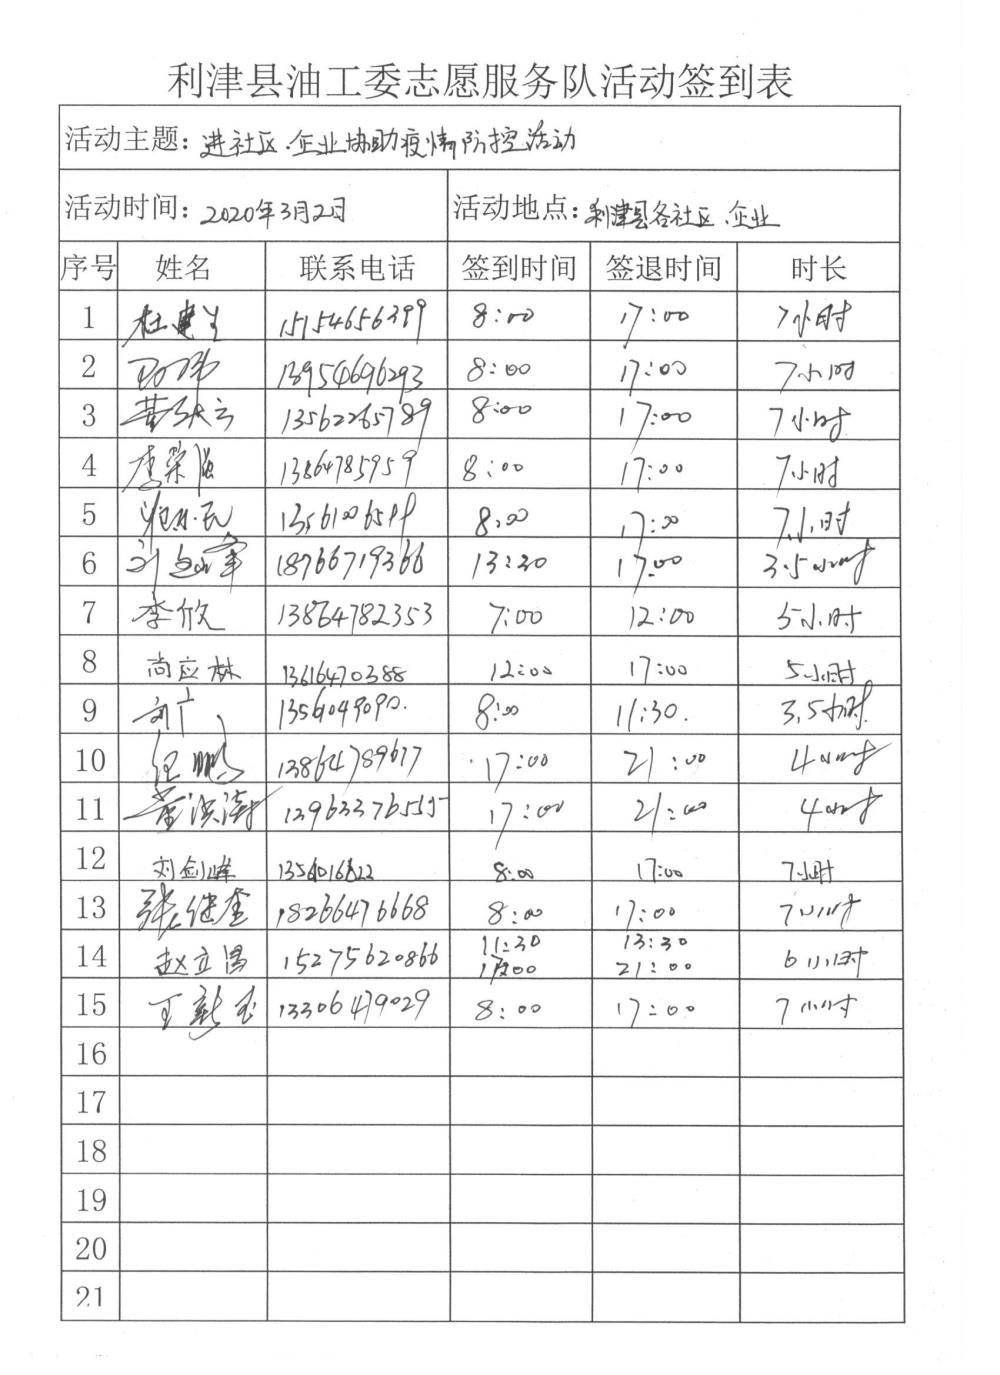 利津县油工委志愿服务队活动签到表
活动主题：进社区、企业协助疫情防控活动
活动时间：2020年3月2日 活动地点：利津县各社区、企业
序号 姓名 联系电话 签到时间 签退时间 时长
1 杜建生 15154656399 8:00 17:00 7小时
2 13954696293 8:00 17:00 7小时
3 13562265789 8:00 17:00 7小时
4 李荣 13864785959 8:00 17:00 7小时
5 8:00 17:00 7小时
6 刘 18766719366 13:30 17:00 3.5小时
7 李欣 13864782353 7:00 12:00 5小时
8 尚应林 13616470388 12:00 17:00 5小时
9 刘广 13561049090. 8:00 11:30. 3.5小时
10 任鹏 13864789617 17:00 21:00 4小时
11 董洪涛 17:00 21:00 4小时
12 刘剑峰 8:00 17:00 7小时
13 张继奎 18266476668 8:00 17:00 7小时
14 赵立昌 15275620866 11:30 13:30 6小时
17:00 21:00
15 王新玉 13306479029 8:00 17:00 7小时
16
17
18
19
20
21